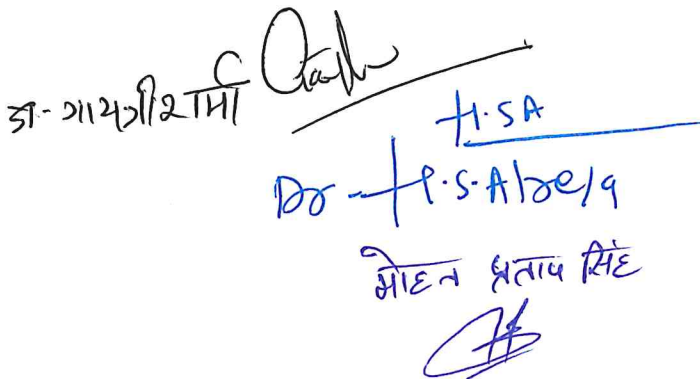 डा- गायत्री शर्मा
H.SA
Dr - H.S. Albela
मोहन प्रताप सिंह